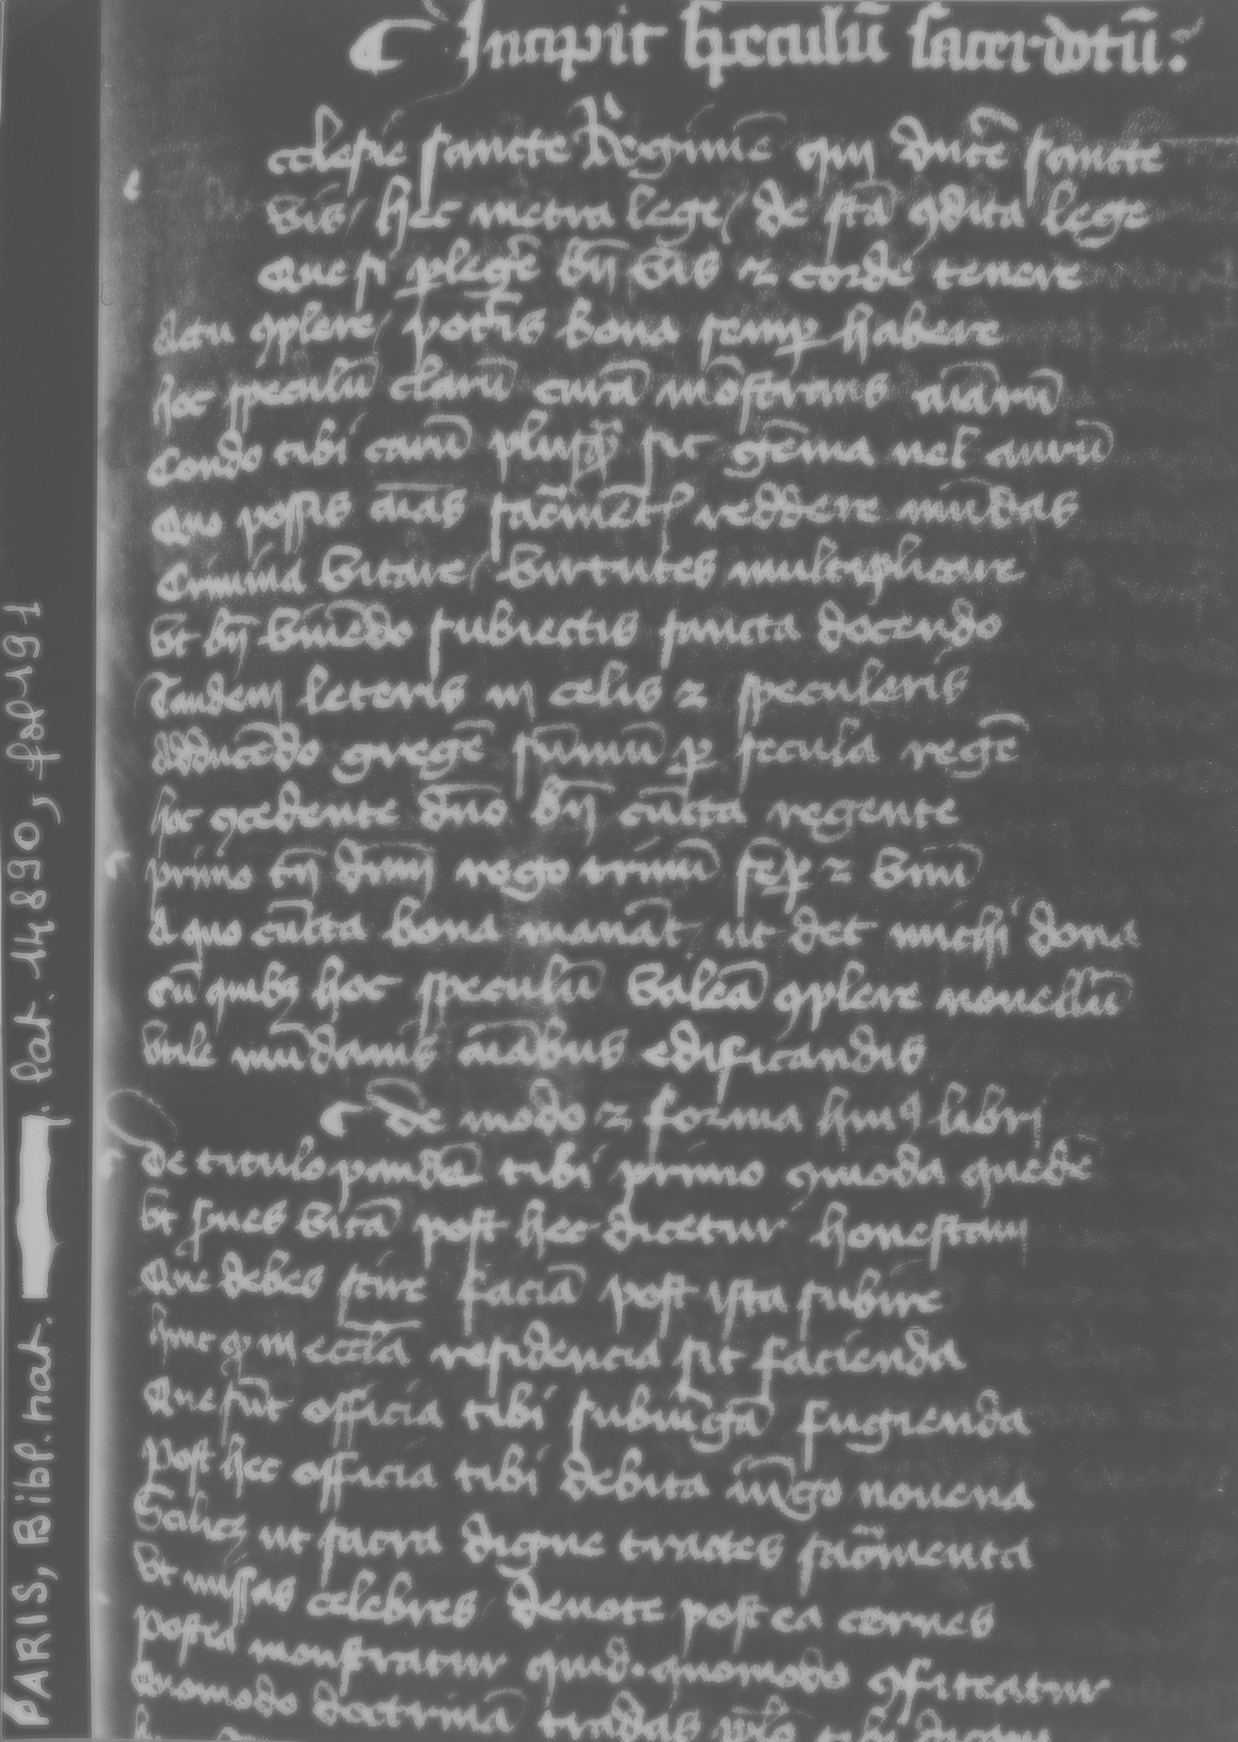 Incipit speculū sacerdotū.
cclesie sancte Regimē qui ducē sancte
vis hec metra lege de sctā ꝯdita lege
Que si ꝑlegē bn̄ vis ⁊ corde tenere
Actu ꝯplere potīs bona semꝑ habere
hoc speculū clarū curā mōstrans aīarū
Condo tibi carū plusqȝ sit gēma uel aurū
Quo possis aīas reddere mūdas
Crimina vitare virtutes multiplicare
vt bn̄ viuēdo subiectis sancta docendo
Tandem leteris in celis ⁊ speculeris
Adducēdo gregē sūmū ꝑ secula regē
hoc ꝯcedente dn̄o bn̄ cūcta regente
primo dn̄m rogo trinū sēꝑ ⁊ vnū
A quo cūcta bona manāt ut det michi dona
Cū quibꝫ hoc speculū valeā ꝯplere nouellū
vtile mūdanis aīabus edificandis
de modo ⁊ forma huiꝰ libri
De titulo pandā tibi primo quedē
vt vitā post hec dicetur honestam
Que debes scire faciā post ista subire
in eccl̄ia residencia sit facienda
Que sūt officia tibi subiūgā fugienda
Post hec officia tibi debita iūgo nouena
Scilicꝫ ut sacra digne tractes sacr̄menta
vt missas celebres deuote post ea cernes
Postea monstratur quid quomodo ꝯfiteatur
Quomodo doctrinā tradas
PARIS, Bibl. nat. lat. 14890, fol 191